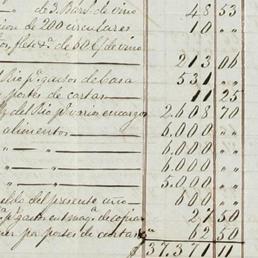 de 3 Baril. de vino 48 53
ion de 200 circulares 10 " "
de 60 L. de vino
213 06
Rio pr. gastos de casa 531 "
portes de cartas 11 25
del Rio pr. varios encargos 2.608 70
alimentos 6.000 " "
6.000 " "
6.000 " "
5.000 " "
del presente año 600 " "
gastos en maq. de copiar 27 50
por portes de cartas 62 50
$ 37.371 11